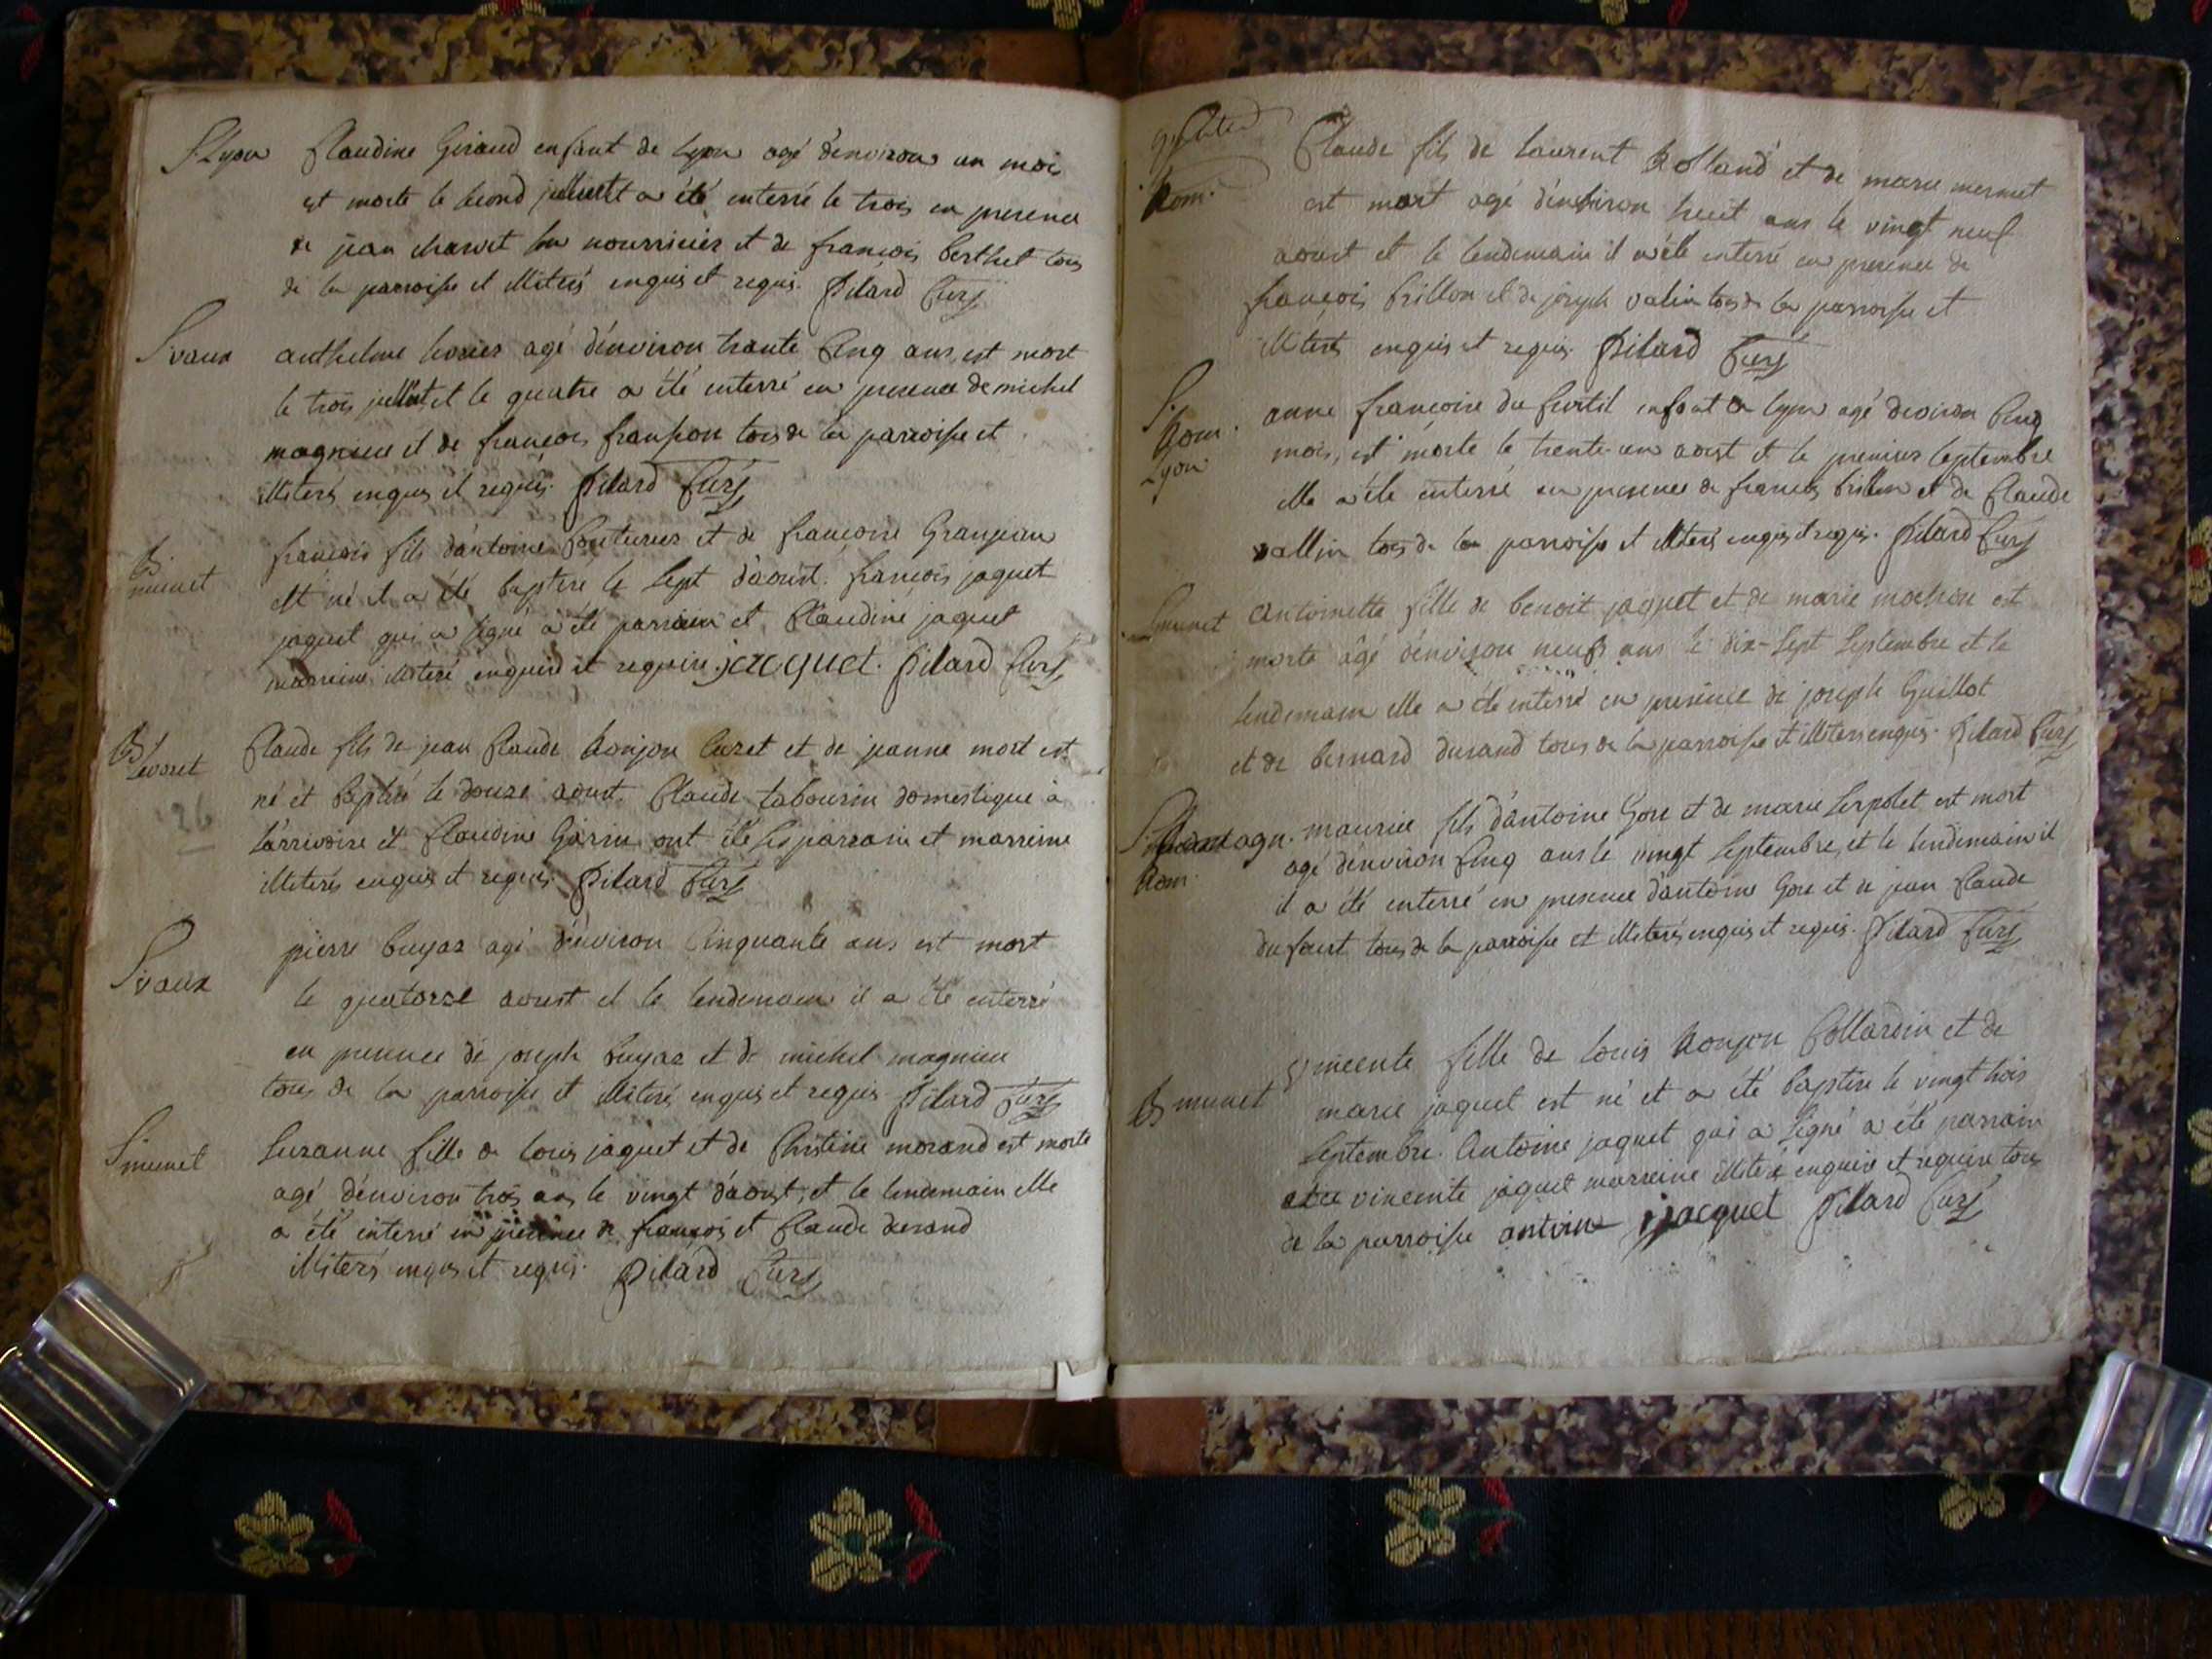 S Lyon
Claudine Giraud enfant de Lyon agé d'environ un moi
est morte le second juilliet et a été enterré le trois en presence
de jean charvet son nourricier et de françois berthet tous
de la parroisse et illiterés enquis et requis. Pilard Curé
S vaux
anthelme agé d'environ trante Cinq ans, est mort
le trois juillet, et le quatre a été enterré en presence de michel
magnieu et de françois tous de la parroisse et
illiterés enquis et requis. Pilard Curé
B. munet
francois fils d'antoine Couturier et de francoise Granjean
est né et a été baptisé le sept d'aoust. françois jaquet
jaquet qui a signé a été parrain et Claudine jaquet
marreine illiteré enquise et requise. jacquet. Pilard Curé
B
Claude fils de jean Claude bonjon Curet et de jeanne mort est
né et baptisé le douze aoust. Claude tabourin domestique à
l'arrivoire et Claudine Garin ont été ses parrain et marreine
illiterés enquis et requis. Pilard Curé
26
S vaux
pierre buyaz agé d'environ Cinquante ans est mort
le quatorze aoust et le lendemain il a été enterré
en presence de joseph buyaz et de michel magnieu
tous de la parroisse et illiterés enquis et requis Pilard Curé
S munet
Suzanne fille de louis jaquet et de Christine morand est morte
agé d'environ trois ans le vingt d'aoust, et le lendemain elle
a été enterré en presence de françois et Claude durand
illiterés enquis et requis. Pilard Curé
Rom.
Claude fils de laurent Rolland et de marie mermet
est mort agé d'environ huit ans le vingt neuf
aoust et le lendemain il a été enterré en presence de
françois brillon et de joseph valin tous de la parroisse et
illiterés enquis et requis. Pilard Curé
S. Rom. Lyon
anne françoise du enfant de lyon agé d'environ Cinq
mois, est morte le trente-un aoust et le premier septembre
elle a été enterré en presence de francois brillon et de Claude
vallin tous de la parroisse et illiterés enquis et requis. Pilard Curé
S munet
Antoinette fille de benoit jaquet et de marie mochon est
morte âgé d'environ neuf ans le dix-sept septembre et le
lendemain elle a été enterré en presence de joseph Guillot
et de bernard durand tous de la parroisse et illiterés enquis. Pilard Curé
S. Rom.
maurice fils d'antoine Gore et de marie Serpolet est mort
agé d'environ Cinq ans le vingt septembre, et le lendemain il
il a été enterré en presence d'antoine Gore et de jean Claude
dufaut tous de la parroisse et illiterés enquis et requis. Pilard Curé
B munet
vincente fille de louis bonjon Collardin et de
marie jaquet est né et a été baptisé le vingt trois
septembre. Antoine jaquet qui a signé a été parrain
et vincente jaquet marreine illiteré enquise et requise tous
de la parroisse antoine jacquet Pilard Curé